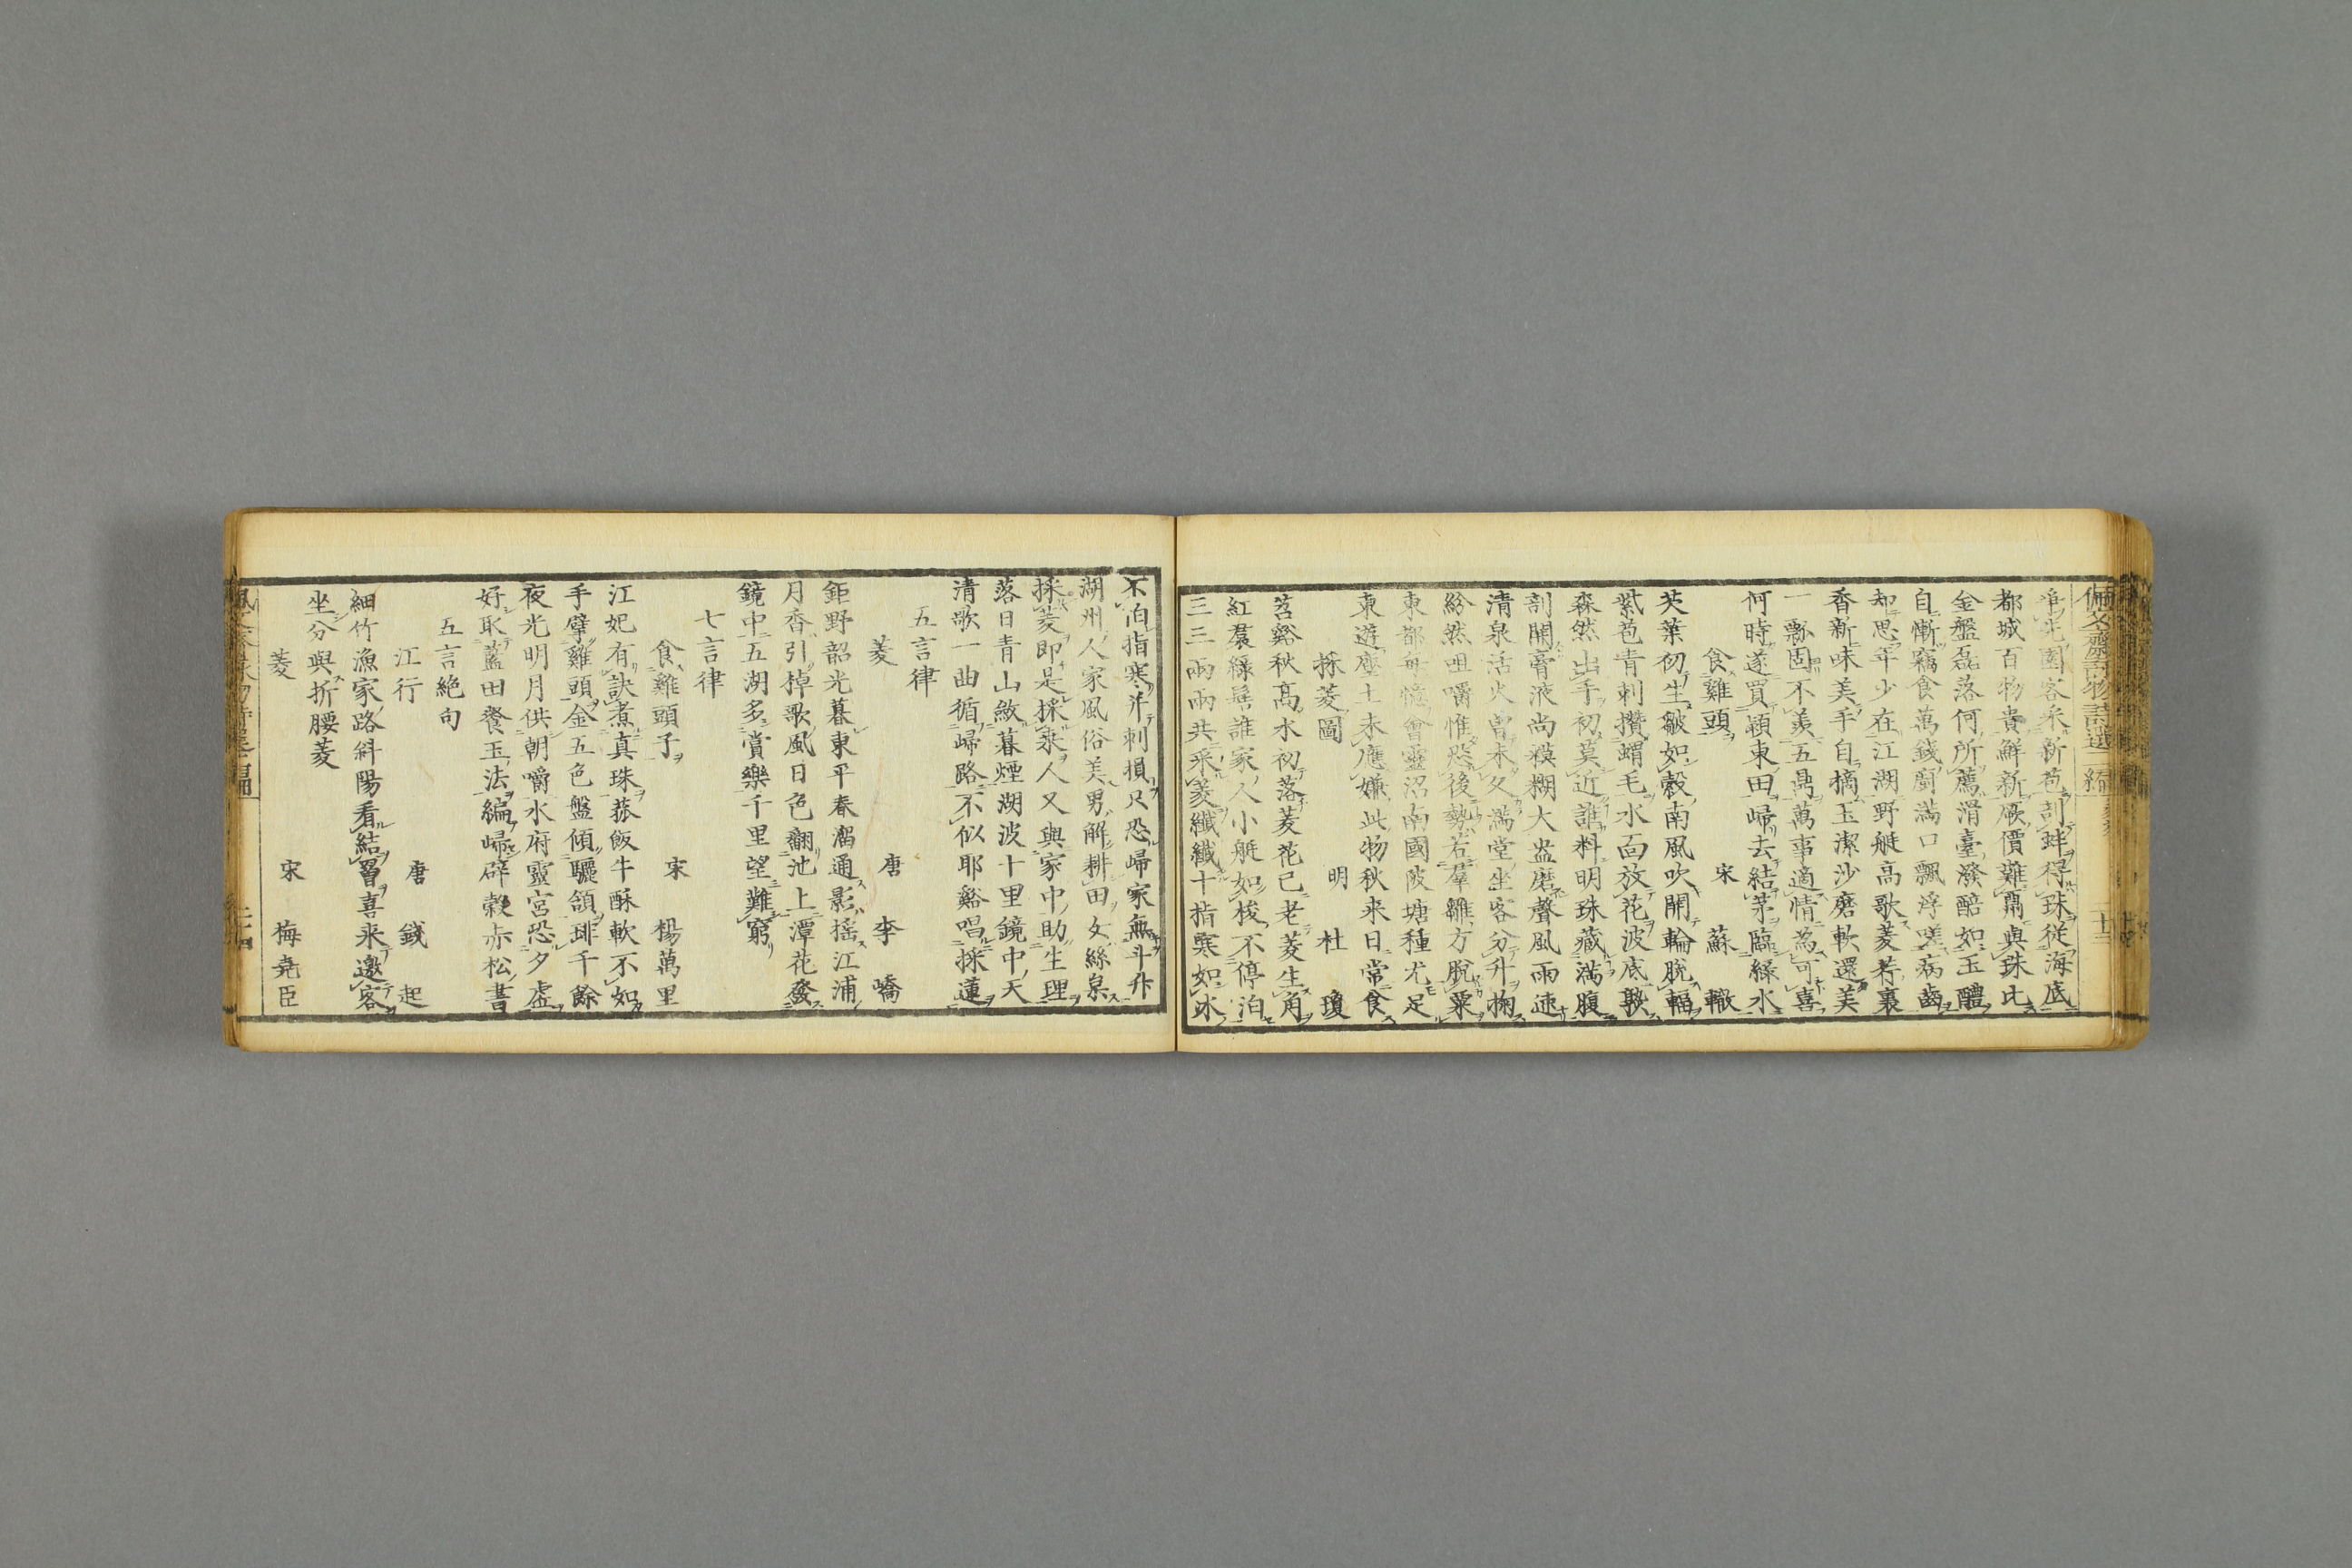 佩文齋詠物詩選二編
園客采新苞剖蚌得珠從海底
都城百物貴鮮新厥價難酬與珠比
金盤磊落何所薦滑臺潑醅如玉醴
自慚竊食萬錢廚滿口飄浮嗟病齒
却思年少在江湖野艇高歌菱荇裏
香新味美手自摘玉潔沙磨軟還美
一瓢固不羨五鼎萬事適情為可喜
何時遂買潁東田歸去結茅臨綠水
食雞頭 宋 蘇 轍
芡葉初生皺如縠南風吹開輪脫輻
紫苞青刺攢蝟毛水面放花波底熟
森然出手初莫近誰料明珠藏滿腹
剖開膏液尚糢糊大盎磨聲風雨速
清泉活火曾未久滿堂坐客分升掬
紛然咀嚼惟恐後勢若群雛方脫粟
東都每憶會靈沼南國陂塘種尤足
東遊塵土未應嫌此物秋來日常食
採菱圖 明 杜 瓊
苕谿秋高水初落菱花已老菱生角
紅裙綠髻誰家人小艇如梭不停泊
三三兩兩共采菱纖纖十指寒如冰
不怕指寒并刺損只恐歸家無斗升
湖州人家風俗美男解耕田女絲枲
採菱即是採桑人又與家中助生理
落日青山斂暮煙湖波十里鏡中天
清歌一曲循歸路不似耶谿唱採蓮
五言律
菱 唐 李 嶠
鉅野韶光暮東平春溜通影搖江浦
月香引棹歌風日色翻池上潭花發
鏡中五湖多賞樂千里望難窮
七言律
食雞頭子 宋 楊萬里
江妃有訣煮真珠菰飯牛酥軟不如
手擘雞頭金五色盤傾驪頷琲千餘
夜光明月供朝嚼水府靈宮恐夕虛
好取藍田餐玉法編歸辟穀赤松書
五言絕句
江行 唐 錢 起
細竹漁家路斜陽看結罾喜來邀客
坐分與折腰菱
菱 宋 梅堯臣